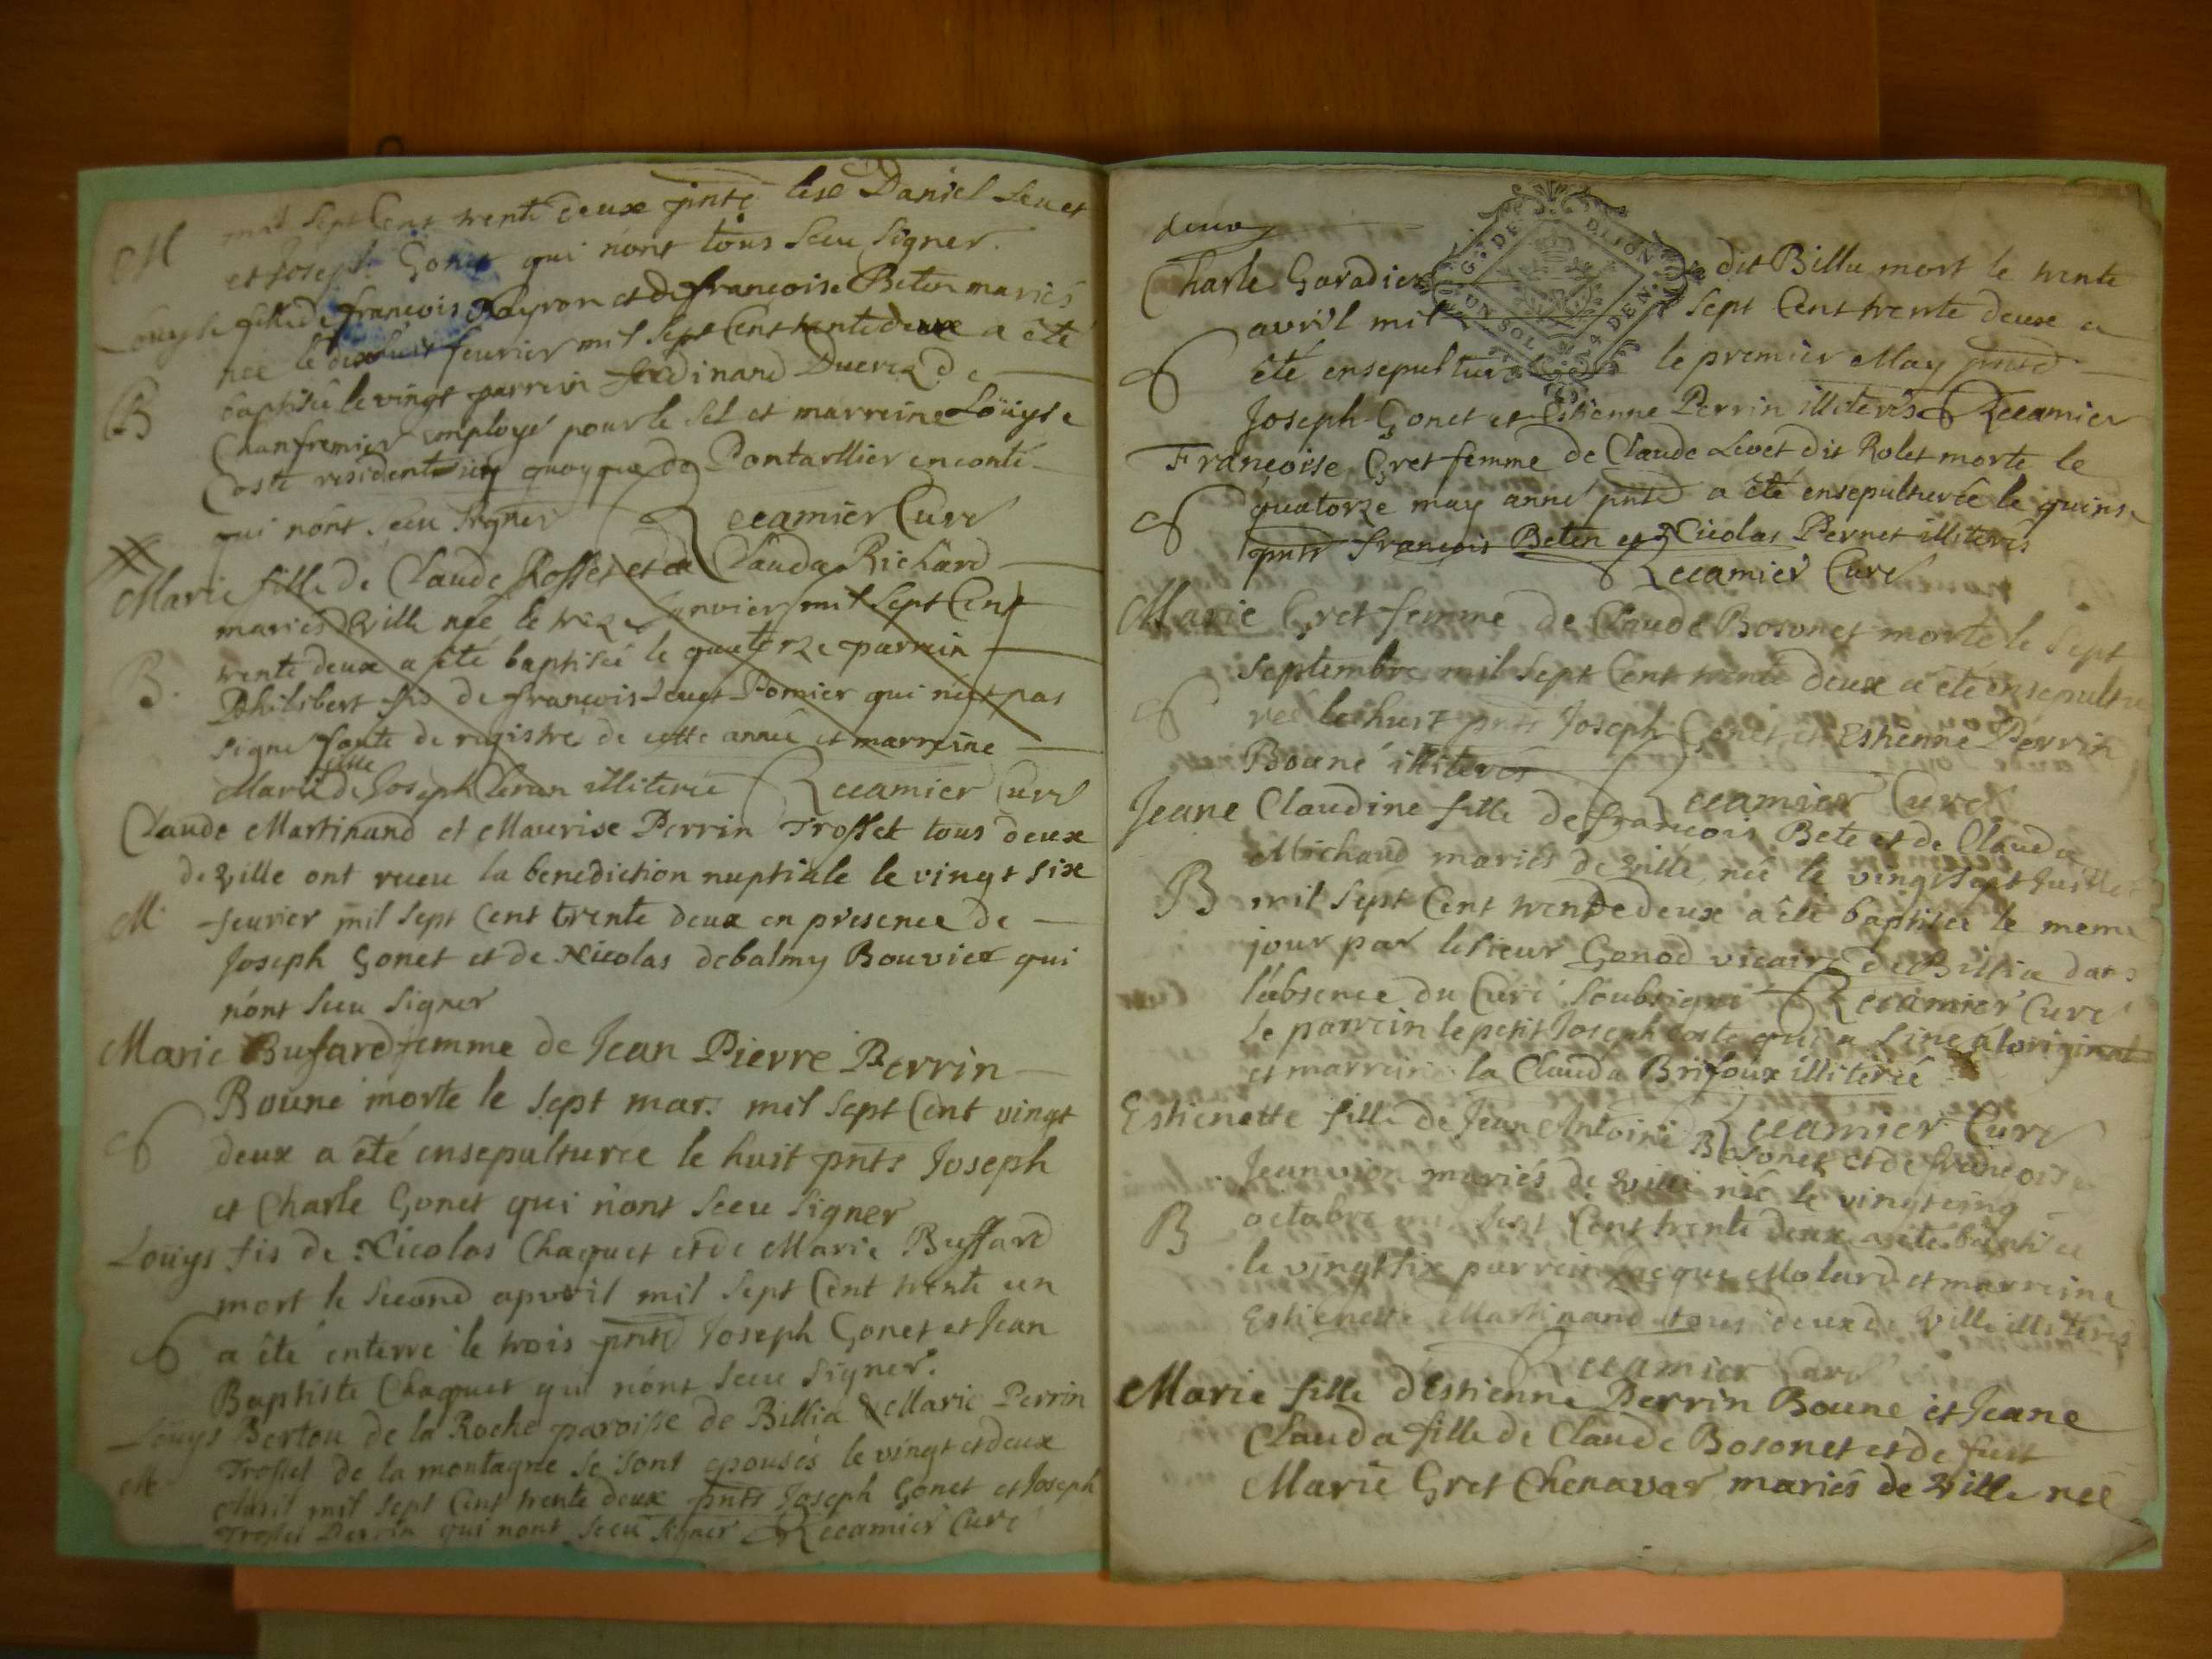 M mil sept Cent trente deux pnts les Daniel Levet
et Joseph Gonet qui nont tous sceu signer.
Louyse fille de francois Neyron et de francoise Beten mariés
née le dixhuit feurier mil sept Cent trente deux a été
B baptisée le vingt parrein ferdinand Duverd de
Chanfremier employé pour le sel et marreine Loüyse
Coste residents icy quoyque de Pontarllier en conté
qui nònt sceu signer Recamier Curé
Marie fille de Claude Rosset et de Clauda Richard
mariés de ville née le treze Janvier mil sept Cent
trente deux a été baptisée le quatorze parrein
B. Philibert fis de francois Levet Pomier qui n'est pas
signé faute de registre de cette année et marreine
fille
Marie de Joseph illiterée Recamier Curé
Claude Martinand et Maurise Perrin Trosset tous deux
de ville ont receu la benediction nuptiale le vingt six
M feurier mil sept Cent trente deux en presence de
Joseph Gonet et de Nicolas debalmy Bouvier qui
nónt sceu signer
Marie Bufard femme de Jean Pierre Perrin
Bouné morte le sept mars mil sept Cent vingt
S deux a été ensepulturée le huit pnts Joseph
et Charle Gonet qui nónt sceu signer
Loüys fis de Nicolas Chaquet et de Marie Buffard
mort le second apvril mil sept Cent trente un
S a été enterré le trois pnts Joseph Gonet et Jean
Baptiste Chaquet qui nónt sceu signer.
Loüys Bertou de la Roche paroisse de Billia & Marie Perrin
M Trosset de la montagne se sont epousés le vingt et deux
Avril mil sept Cent trente deux pnts Joseph Gonet et Joseph
Trosset Perrin qui nont sceu signer Recamier Curé
deux
G. DE DIJON
UN SOL 4 DEN.
Charle Garadier dit Billu mort le trente
avril mil sept Cent trente deux a
S été ensepulturé le premier May pnts
Joseph Gonet et Estienne Perrin illiterés Recamier
Francoise Gret femme de Claude Levet dit Rolet morte le
S quatorze may année pnte a été ensepulturée le quinse
pnts francois Beten et Nicolas Pernet illiterés
Recamier Curé
Marie Gret femme de Claude Bosonet morte le sept
septembre mil sept Cent trente deux a été ensepultu
S rée le huit pnts Joseph Gonet et Estienne Perrin
Bouné illiterés
Recamier Curé
Jeane Claudine fille de francois Bete et de Clauda
Michaud mariés de ville née le vingt sept Juillet
B mil sept Cent trente deux a été baptisée le meme
jour par le sieur Gonod vicaire de Billia dans
l'absence du Curé soubsigné Recamier Curé
Le parrein le petit Joseph Coste qui a siné a loriginal
et marreine la Clauda Brifoux illiterée
Recamier Curé
Estienette fille de Jean Antoine Bosonet et de francoise
Jeanvion mariés de ville née le vingt cinq
B octobre mil sept Cent trente deux a été baptisée
le vingt six parrein Jacque Molard et marreine
Estienette Martinand tous deux de ville illiterés
Recamier Curé
Marie fille d'Estienne Perrin Bouné et Jeane
Clauda fille de Claude Bosonet et de fust
Marie Gret Chenavar mariés de ville née